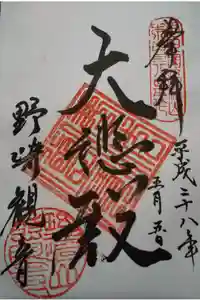 奉拝
平成二十八年
五月五日
大悲殿
野崎観音